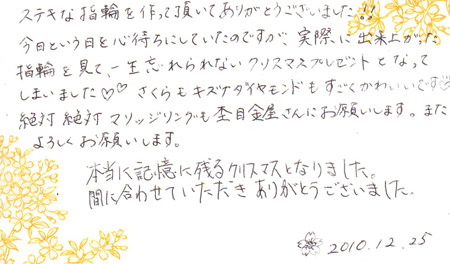 ステキな指輪を作って頂いてありがとうございました!!
今日という日を心待ちにしていたのですが、実際に出来上がった
指輪を見て、一生忘れられないクリスマスプレゼントとなって
しまいました♡♡ さくらもキズナダイヤモンドもすごくかわいいです♡
絶対絶対マリッジリングも杢目金屋さんにお願いします。また
よろしくお願いします。
本当に記憶に残るクリスマスとなりました。
間に合わせていただきありがとうございました。
2010.12.25